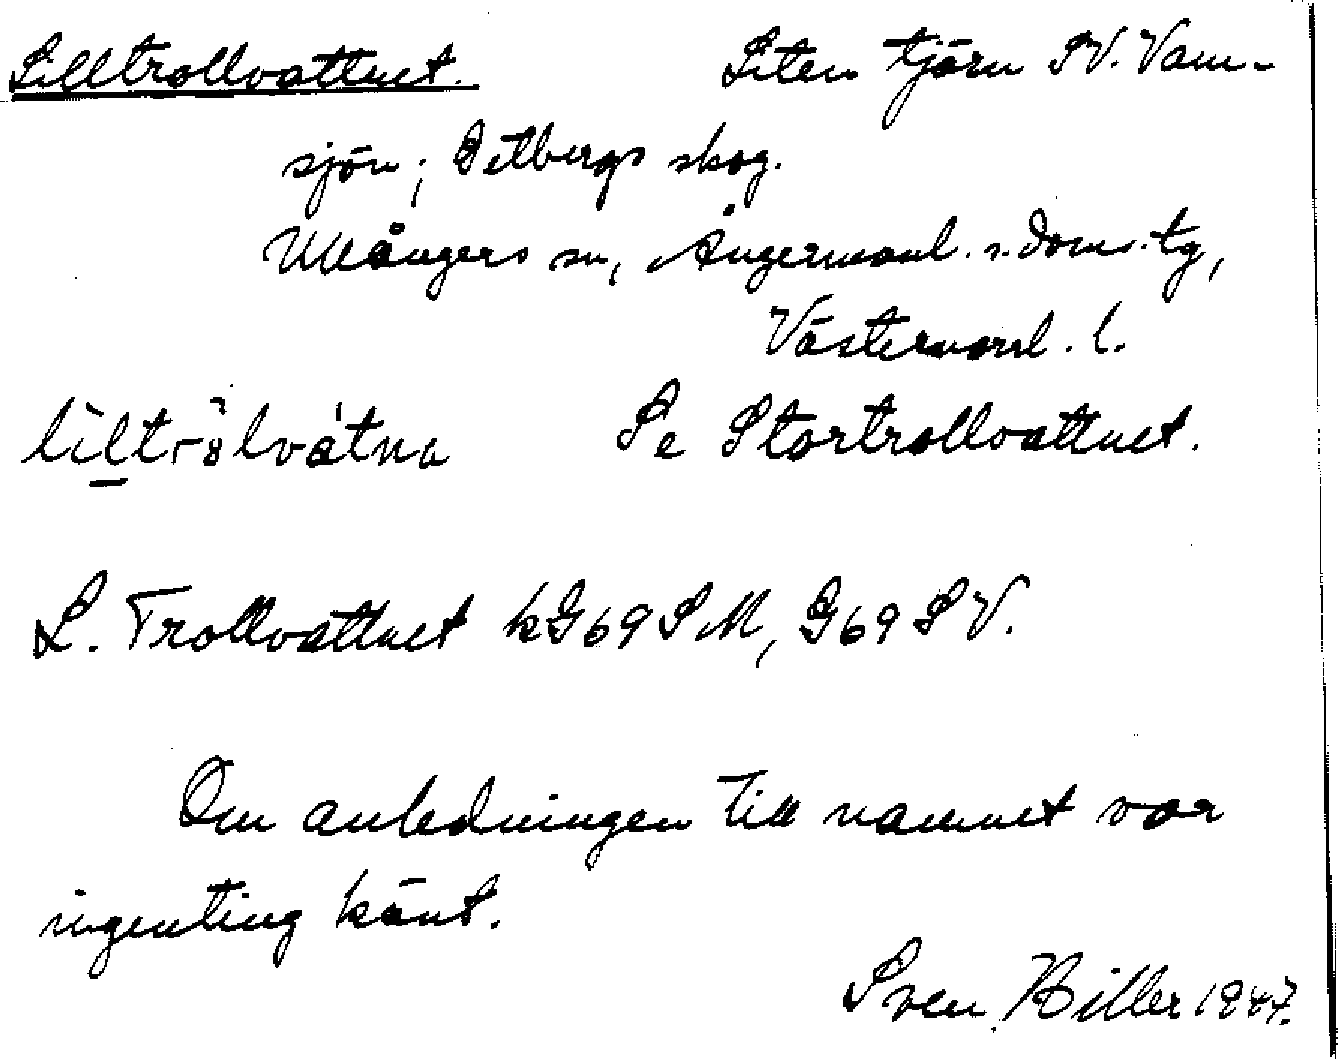 Lilltrollvattnet. Liten tjärn SV. Vam-
sjön; skog.
Ullångers sn, Ångermanl. s. doms.tg,
Västernorrl. l.
liltrölvátna Se Stortrollvattnet.
L. Trollvattnet kG69SM, G69SV.
Om anledningen till namnet var
ingenting känt.
Sven Hiller 1947.